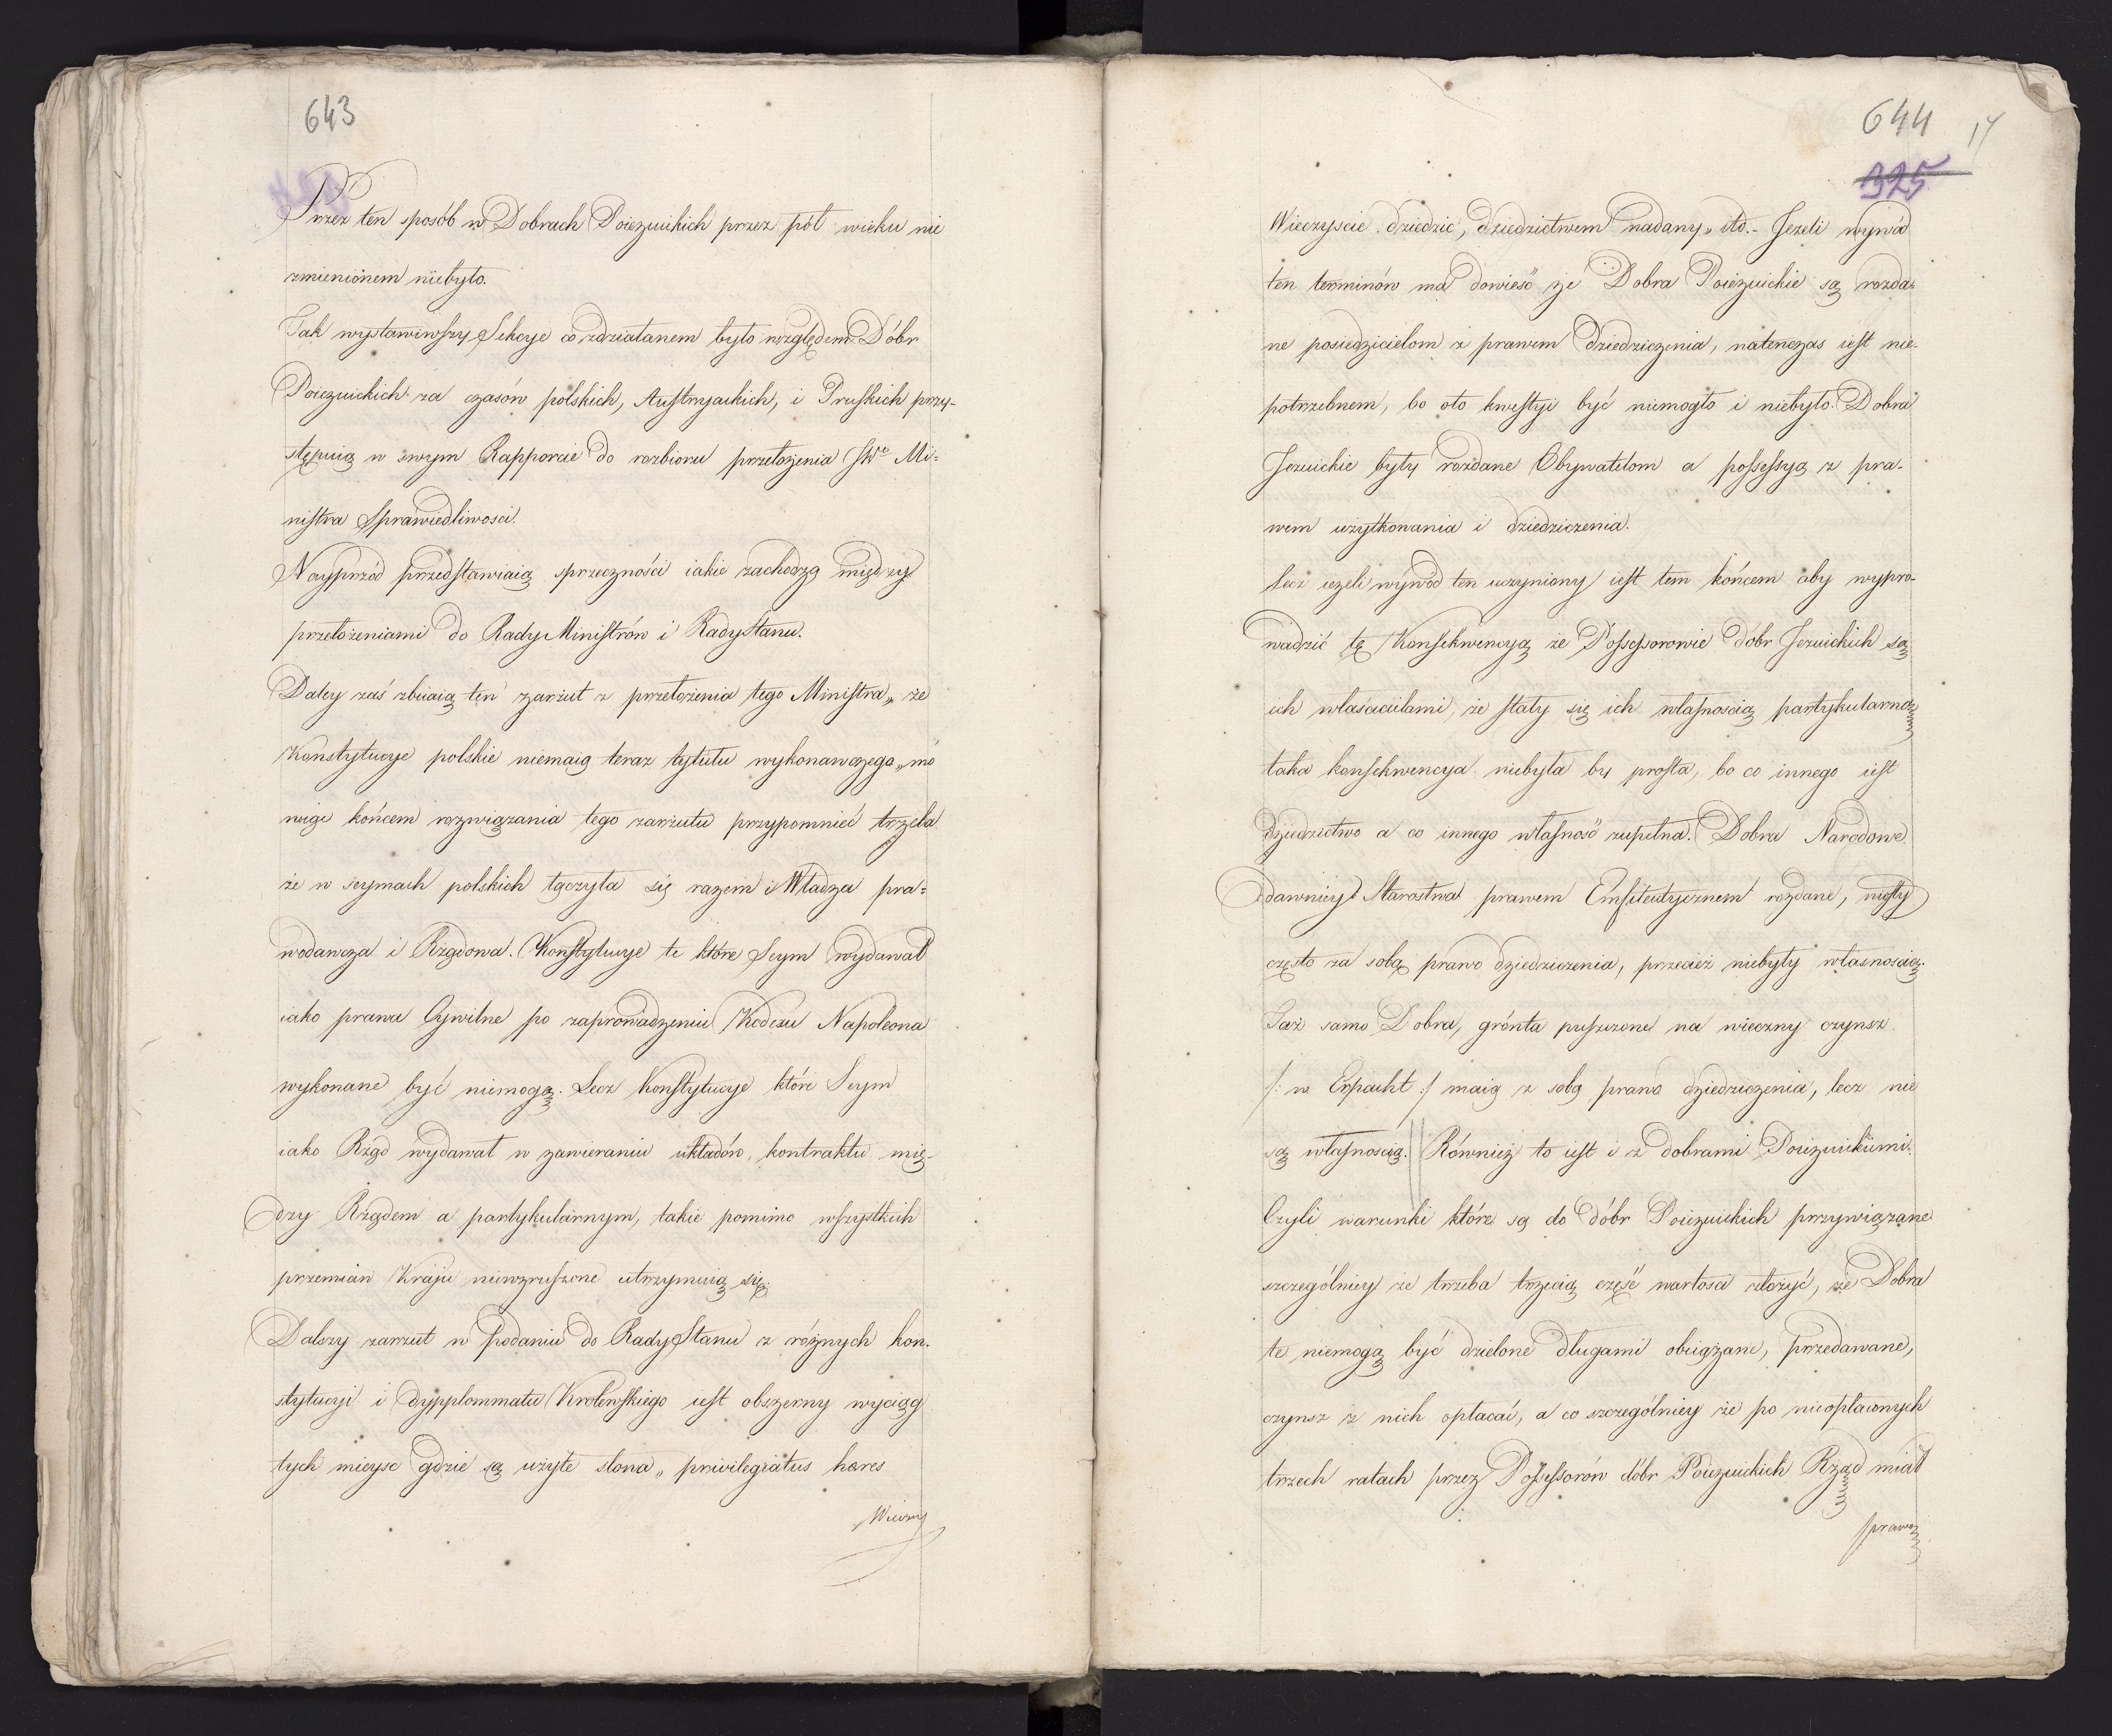 643
Przez ten sposób w Dobrach Poiezuickich przez pół wieku nic
zmienionem niebyło.
Tak wystawiwszy Sekcye co zdziałanem było względem Dóbr
Poiezuickich za czasów polskich, Austryackich, i Pruskich przy-
stępuią w swym Rapporcie do rozbioru przełożenia JWo Mi=
nistra Sprawiedliwosci.
Nayprzód przedstawiaią sprzeczności iakie zachodzą między
przełożeniami do Rady Ministrów i Rady Stanu.
Daley zaś zbiiaią ten zarzut z przełożenia tego Ministra„ że
Konstytucye polskie niemaią teraz tytułu wykonawczego„ mó
wiąc końcem rozwiązania tego zarzutu przypomnieć trzeba
że w seymach polskich łączyła się razem i Władza pra=
wodawcza i Rządowa. Konstytucye te które Seym wydawał
iako prawa Cywilne po zaprowadzeniu Kodexu Napoleona
wykonane być niemogą. Lecz Konstytucye które Seym
iako Rząd wydawał w zawieraniu układów, kontraktu mię-
dzy Rządem a partykularnym, takie pomimo wszystkich
przemian Kraju niewzruszone utrzymuią się.
Dalszy zarzut w podaniu do Rady Stanu z różnych kon-
stytucyi i dypplommatu Krolewskiego iest obszerny wyciąg
tych mieysc gdzie są użyte słowa„ privilegiatus hæres
Wieczy
644 14
325
Wieczyscie dziedzic, dziedzictwem nadany„ itd.- Jeżeli wywód
ten terminów ma dowieść że Dobra Poiezuickie są rozda-
ne posiedzicielom z prawem dziedziczenia, natenczas iest nie-
potrzebnem, bo oto kwestyi być niemogło i niebyło. Dobra
Jezuickie były rozdane Obywatelom a possessyą z pra-
wem użytkowania i dziedziczenia.
Lecz ieżeli wywód ten uczyniony iest tem końcem aby wypro-
wadzić tę Konsekwencyą że Possessorowie dóbr Jezuickich są
ich właścicielami, że stały się ich własnością partykularną
taka konsekwencya niebyła by prosta, bo co innego iest
dziedzictwo a co innego własność zupełna. Dobra Narodowe
dawniey Starostwa prawem Emfiteutycznem rozdane, niosły
często za sobą prawo dziedziczenia, przecież niebyły własnością.
Taż samo Dobra, grónta puszczone na wieczny czynsz
/: w Erpacht :/ maią z sobą prawo dziedziczenia, lecz nie
są własnością. Również to iest i z dobrami Poiezuickiemi.
Czyli warunki które są do dóbr Poiezuickich przywiązane
szczególniey że trzeba trzecią część wartości złożyć, że Dobra
te niemogą być dzielone długami obciążane, przedawane,
czynsz z nich opłacać, a co szczególniey że po nieopłaconych
trzech ratach przez Possessorów dóbr Poiezuickich Rząd miał
prawo